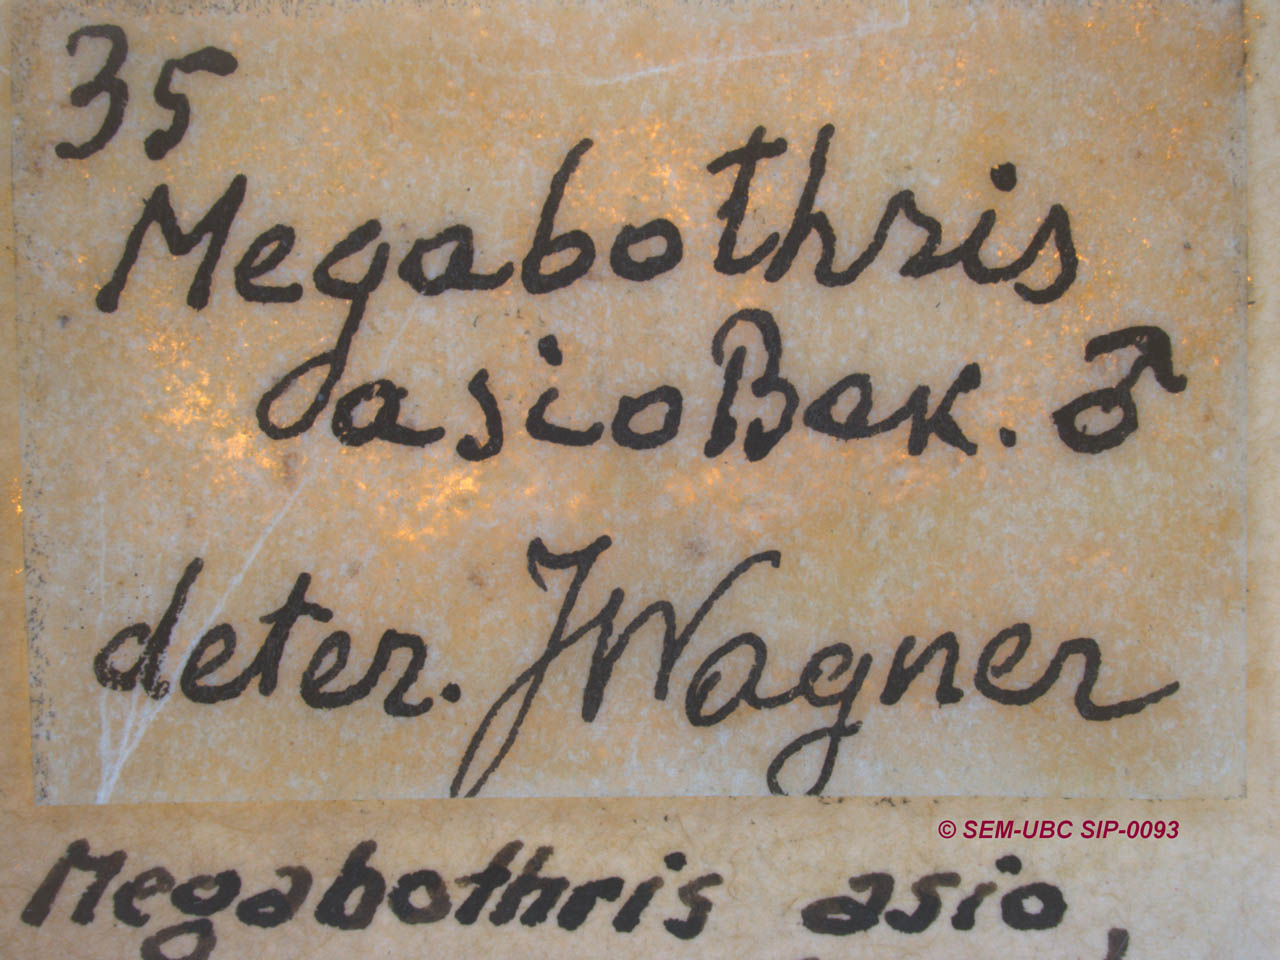 35
Megabothris
asio Bak. ♂
deter. J Wagner
© SEM-UBC SIP-0093
Megabothris asio,